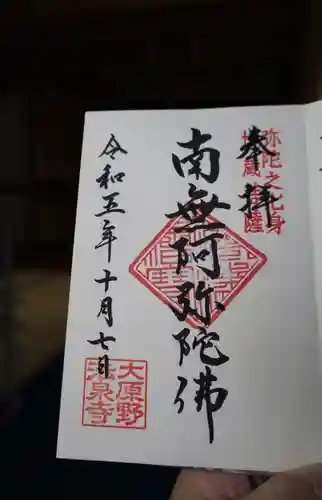 奉拝
弥陀之化身
南無阿弥陀佛
令和五年十月七日
大原野
法泉寺